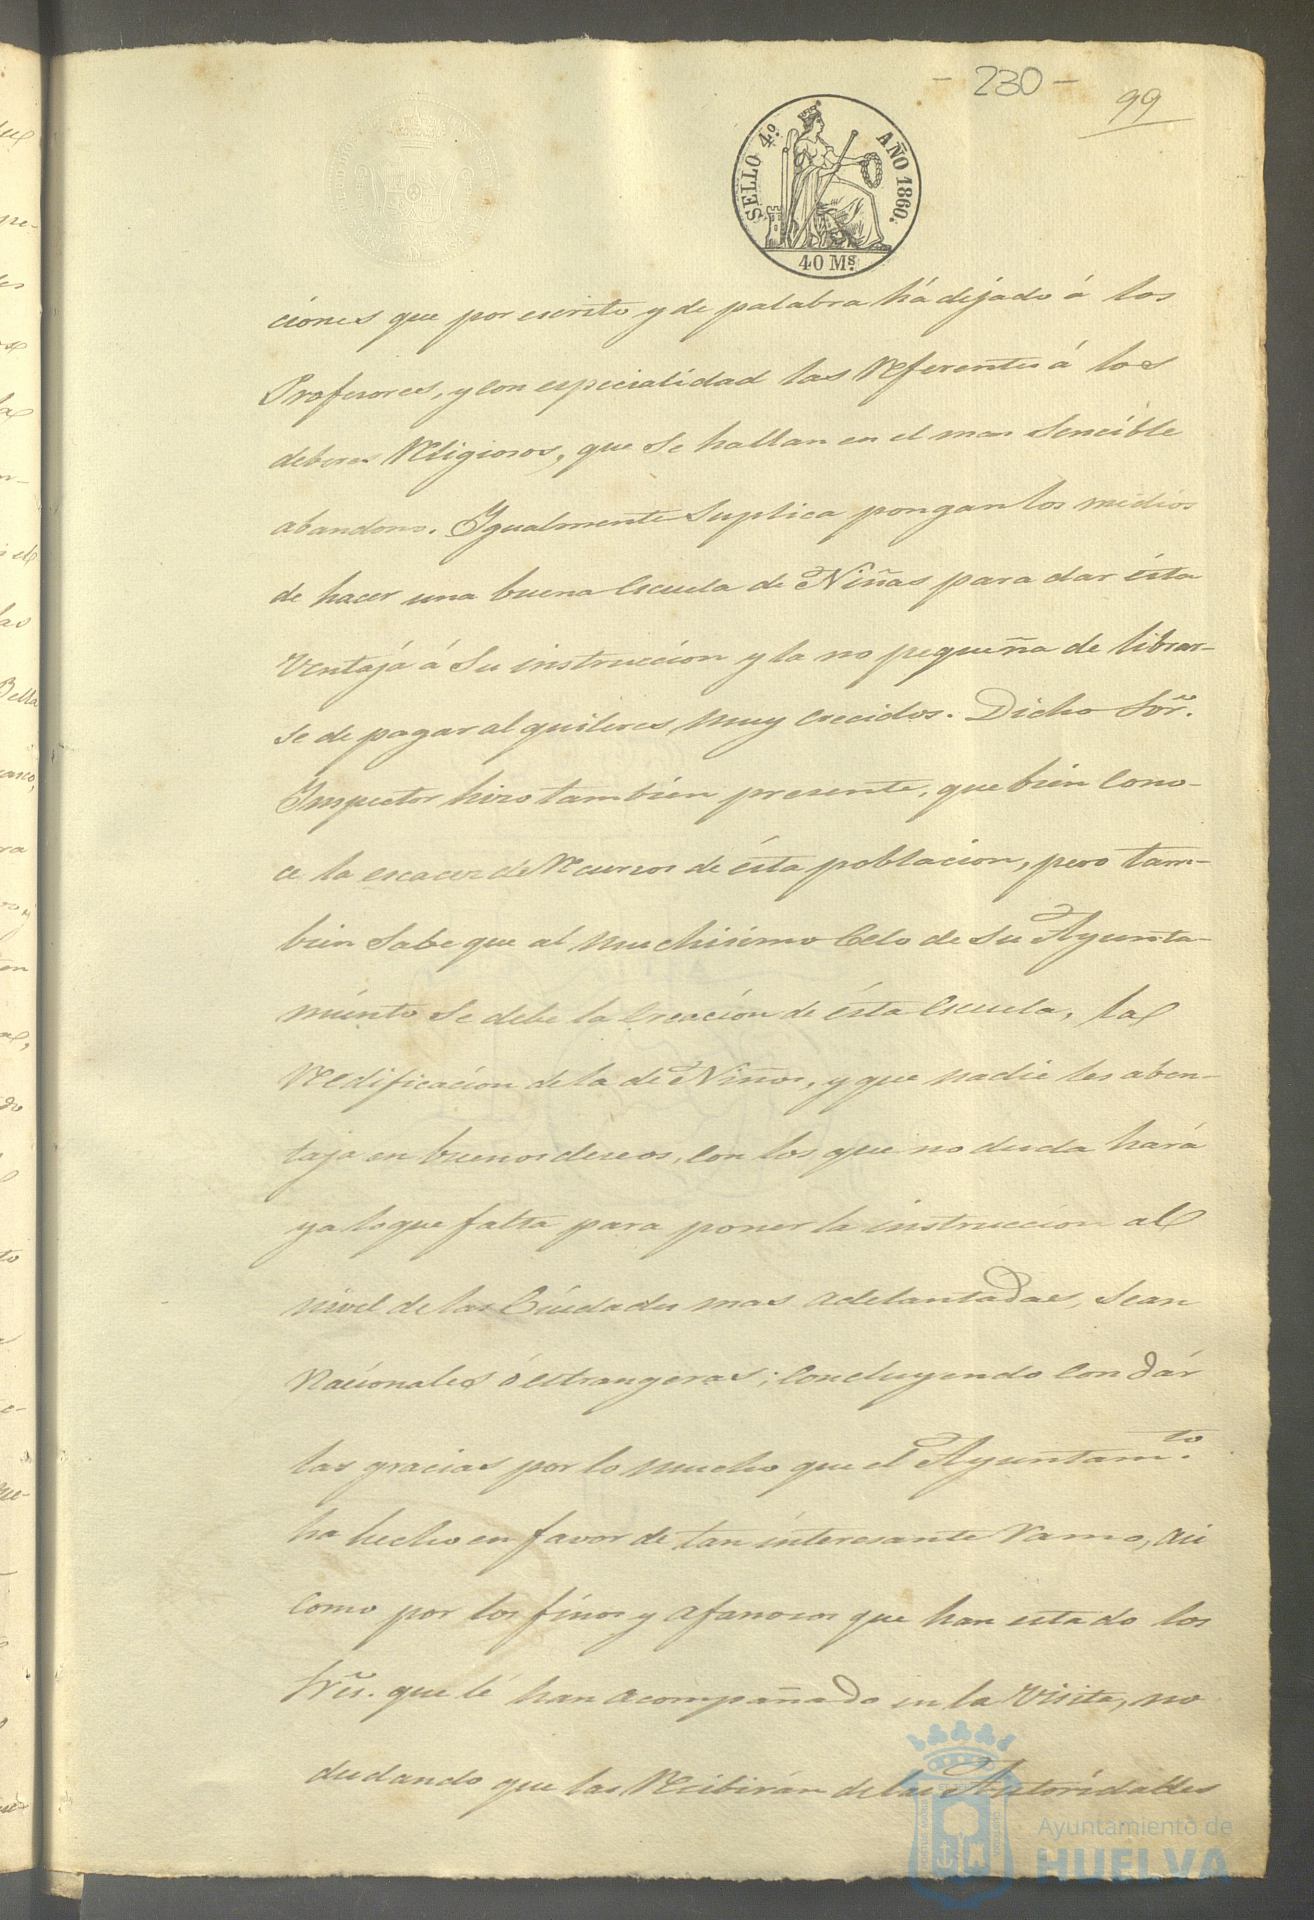 - 230 -
99
SELLO 4º. AÑO 1860.
40 Ms.
ciones que por escrito y de palabra há dejado á los
Profesores, y con especialidad las referentes á los
deberes religiosos, que se hallan en el mas sencible
abandono. Igualmente suplica pongan los medios
de hacer una buena Escuela de Niñas para dar ésta
ventajá á su instruccion y la no pequeña de librar-
se de pagar alquileres muy crecidos. Dicho Sōr.
Inspector hizo tambien presente, que bien cono-
ce la escacez de recursos de ésta poblacion, pero tam-
bien sabe que al muchisimo celo de su Ayunta-
miento se debe la creación de ésta Escuela, la
redificacion de la de Niños, y que nadie les aben-
taja en buenos deseos, con los que no duda hará
ya lo que falta para poner la instruccion al
nivel de las Ciudades mas adelantadas, sean
Nacionales ó estrangeras; concluyendo con dár
las gracias por lo mucho que el Ayuntam.to
ha hecho en favor de tan interesante ramo, asi
como por los finos y afanosos que han estado los
Sr̃es. que lé han acompañado en la visita, no
dudando que las recibirán de las Autoridades
Ayuntamiento de
HUELVA